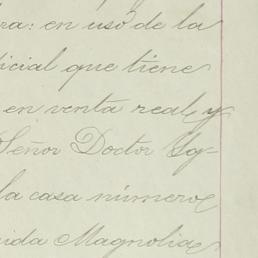 ra: en uso de la
icial que tiene
en venta real y
Señor Doctor Ig-
la casa número
nida Magnolia